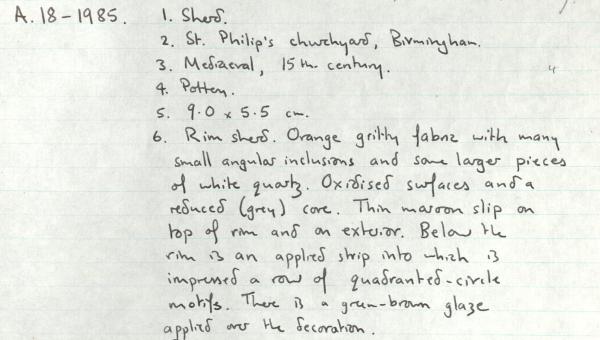 A.18-1985. 1. Sherd.
2. St. Philip's churchyard, Birmingham.
3. Mediaeval, 15th. century.
4. Pottery.
5. 9.0 x 5.5 cm.
6. Rim sherd. Orange gritty fabric with many
small angular inclusions and some larger pieces
of white quartz. Oxidised surfaces and a
reduced (grey) core. Thin maroon slip on
top of rim and on exterior. Below the
rim is an applied strip into which is
impressed a row of quadranted-circle
motifs. There is a green-brown glaze
applied over the decoration.